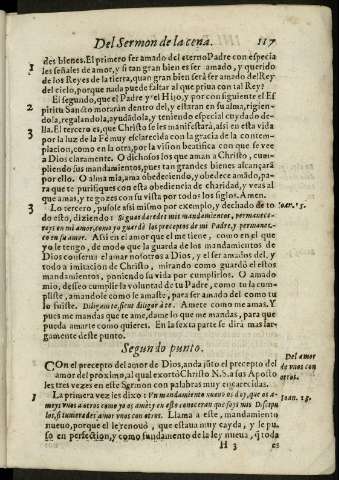 Del Sermon de la cena. 117
des bienes. El primero ser amado del eterno Padre con especia
1 les señales de amor, y si tan gran bien es ser amado, y querido
de los Reyes de la tierra, quan gran bien será ser amado del Rey
del cielo, porque nada puede faltar al que priua con tal Rey?
2 El segundo, que el Padre y el Hijo, y por consiguiente el Es
piritu Sancto morarán dentro del, y estaran en su alma, rigien-
dola, regalandola, ayudádola, y teniendo especial cuydado de-
3 lla. El tercero es, que Christo se les manifestará, assi en esta vida
por la luz de la Fé muy esclarecida con la gracia de la contem-
placion, como en la otra, por la vision beatifica con que se vee
a Dios claramente. O dichosos los que aman a Christo, cum-
pliendo sus mandamientos, pues tan grandes bienes alcançará
por ello. O alma mia, ama obedeciendo, y obedece amãdo, pa-
ra que te purifiques con esta obediencia de charidad, y veas al
que amas, y te gozes con su vista por todos los siglos. Amen.
3 Lo tercero, pusose assi mismo por exemplo, y dechado de to Ioan. 15.
do esto, diziendo: Si guardaredes mis mandamientos, permanece-
reys en mi amor, como yo guardè los preceptos de mi Padre, y permanez-
co en su amor. Assi en el amor que el me tiene, como en el que
yo le tengo, de modo que la guarda de los mandamientos de
Dios conserua el amar nosotros a Dios, y el ser amados del, y
todo a imitacion de Christo, mirando como guardó el estos
mandamientos, poniendo su vida por cumplirlos. O amado
mio, desseo cumplir la voluntad de tu Padre, como tu la cum-
pliste, amandole como le amaste, para ser amado del como tu
lo fuiste. Diligam te, sicut diligor à te. Amete como me amas. Y
pues me mandas que te ame, dame lo que me mandas, para que
pueda amarte como quieres. En la sexta parte se dirá mas lar-
gamente deste punto.
Segundo punto.
CON el precepto del amor de Dios, anda jũto el precepto del Del amor
amor del proximo, al qual exortó Christo N. S. a sus Aposto de vnos con
les tres vezes en este Sermon con palabras muy encarecidas. otros.
1 La primera vez les dixo: Vn mandamiento nueuo os doy, que os a- Ioan. 13.
meys vnos a otros como yo os amé: y en esto conoceran que soys mis Discipu
los, si tuuieredes amor vnos con otros. Llama a este, mandamiento
nueuo, porque el le renouò, que estaua muy cayda, y le pu-
so en perfection, y como fundamento de la ley nueua, q̃ toda
H 3 es